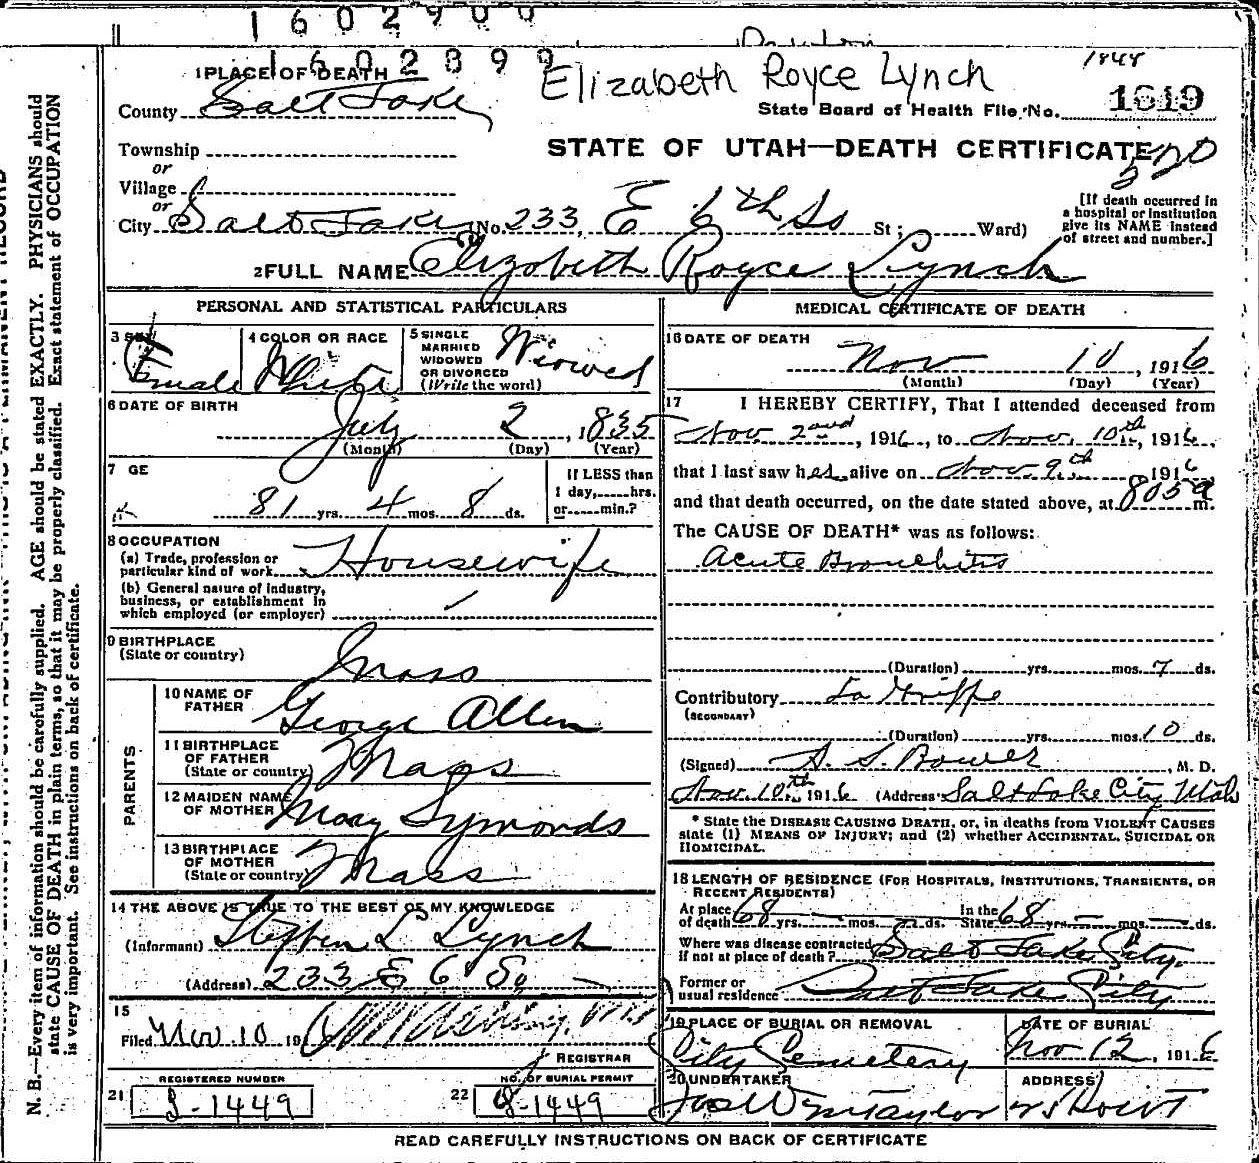 1602900
1602899
Elizabeth Royce Lynch
1848
1 PLACE OF DEATH
County Salt Lake
State Board of Health File No. 1619
Township
STATE OF UTAH—DEATH CERTIFICATE
520
or
Village
or
City Salt Lake (No. 233 E 6th So St; Ward)
[If death occurred in
a hospital or institution
give its NAME instead
of street and number.]
2 FULL NAME Elizabeth Royce Lynch
PERSONAL AND STATISTICAL PARTICULARS
3 SEX Female
4 COLOR OR RACE White
5 SINGLE
MARRIED
WIDOWED
OR DIVORCED
(Write the word)
Widowed
6 DATE OF BIRTH
July 2, 1835
(Month) (Day) (Year)
7 GE
81 yrs. 4 mos. 8 ds.
If LESS than
1 day, hrs.
or min.?
8 OCCUPATION
(a) Trade, profession or
particular kind of work Housewife
(b) General nature of industry,
business, or establishment in
which employed (or employer)
9 BIRTHPLACE
(State or country)
Mass
PARENTS
10 NAME OF
FATHER George Allen
11 BIRTHPLACE
OF FATHER
(State or country) Mass
12 MAIDEN NAME
OF MOTHER Mary Symonds
13 BIRTHPLACE
OF MOTHER
(State or country) Mass
14 THE ABOVE IS TRUE TO THE BEST OF MY KNOWLEDGE
(Informant) Stephen L Lynch
(Address) 233 E 6 So
15
Filed Nov 10 19
REGISTRAR
REGISTERED NUMBER
21 J-1449
NO. OF BURIAL PERMIT
22 J-1449
MEDICAL CERTIFICATE OF DEATH
16 DATE OF DEATH
Nov 10, 1916
(Month) (Day) (Year)
17 I HEREBY CERTIFY, That I attended deceased from
Nov 2nd, 1916, to Nov. 10th, 1916,
that I last saw her alive on Nov. 9th 1916
and that death occurred, on the date stated above, at 805 a m.
The CAUSE OF DEATH* was as follows:
Acute Bronchitis
(Duration) yrs. mos. 7 ds.
Contributory La Grippe
(SECONDARY)
(Duration) yrs. mos. 10 ds.
(Signed) A. S. Bower, M. D.
Nov. 10th, 1916 (Address) Salt Lake City Utah
* State the DISEASE CAUSING DEATH, or, in deaths from VIOLENT CAUSES
state (1) MEANS OF INJURY; and (2) whether ACCIDENTAL, SUICIDAL OR
HOMICIDAL.
18 LENGTH OF RESIDENCE (FOR HOSPITALS, INSTITUTIONS, TRANSIENTS, OR
RECENT RESIDENTS)
At place
of death 68 yrs. mos. ds. In the
State 68 yrs. mos. ds.
Where was disease contracted
if not at place of death? Salt Lake City.
Former or
usual residence Salt Lake City
19 PLACE OF BURIAL OR REMOVAL
City Cemetery
DATE OF BURIAL
Nov 12, 1916
20 UNDERTAKER
Jos Wm Taylor
ADDRESS
READ CAREFULLY INSTRUCTIONS ON BACK OF CERTIFICATE
N. B.—Every item of information should be carefully supplied. AGE should be stated EXACTLY. PHYSICIANS should
state CAUSE OF DEATH in plain terms, so that it may be properly classified. Exact statement of OCCUPATION
is very important. See instructions on back of certificate.